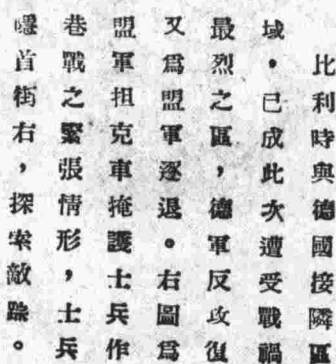 比利時與德國接隣區
域。已成此次遭受戰禍
最烈之區，德軍反攻復
又爲盟軍逐退。右圖爲
盟軍担克車掩護士兵作
巷戰之緊張情形，士兵
隱首街右，探索敵踪。